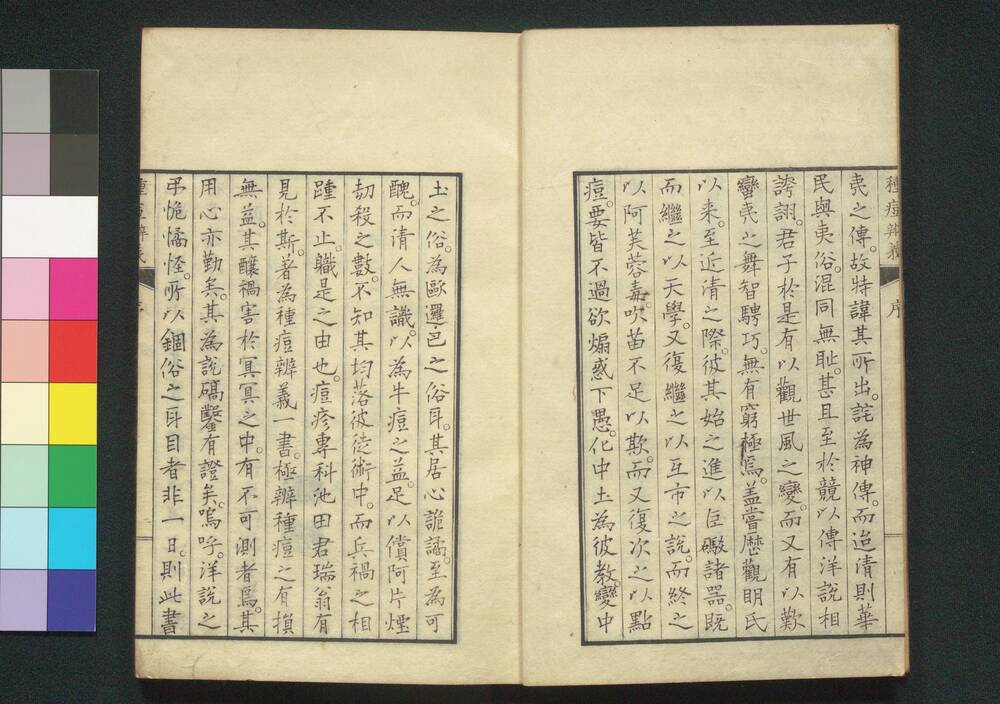 種痘辨義 序
夷之傳。故特諱其所出。詫為神傳。而迨清則華
民與夷俗。混同無耻。甚且至於競以傳洋說相
誇詡。君子於是有以觀世風之變。而又有以歎
蠻夷之舞智騁巧。無有窮極焉。蓋嘗歷觀明氏
以來。至近清之際。彼其始之進以巨礮諸器。既
而繼之以天學。又復繼之以互市之說。而終之
以阿芙蓉毒。吹苗不足以欺。而又復次之以點
痘。要皆不過欲煽惑下愚。化中土為彼教。變中
土之俗。為歐邏邑之俗耳。其居心詭譎。至為可
醜。而清人無識。以為牛痘之益。足以償阿片煙
刧殺之數。不知其均落彼徒術中。而兵禍之相
踵不止。職是之由也。痘疹專科池田君瑞翁有
見於斯。著為種痘辨義一書。極辨種痘之有損
無益。其釀禍害於冥冥之中。有不可測者焉。其
用心亦勤矣。其為說礭鑿有證矣。嗚呼。洋說之
弔恑憰怪。所以錮俗之耳目者非一日。則此書
種痘辨義 序